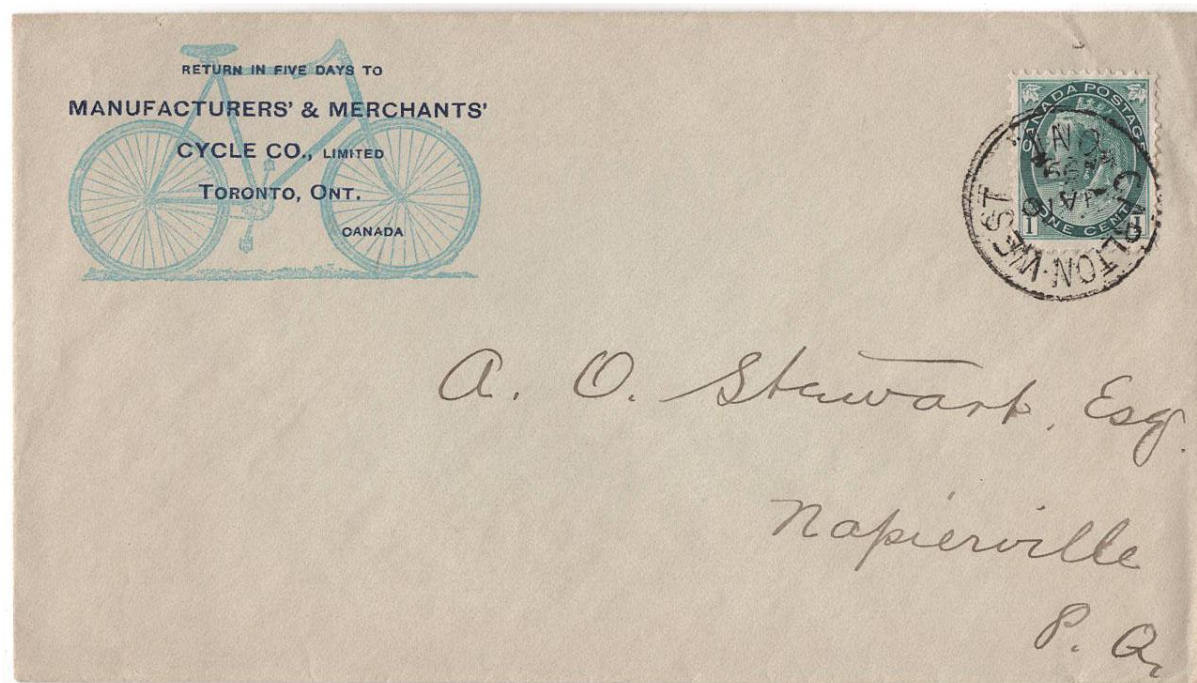 RETURN IN FIVE DAYS TO
MANUFACTURERS' & MERCHANTS'
CYCLE CO., LIMITED
TORONTO, ONT.
CANADA
CANADA POSTAGE
1 ONE CENT 1
CARLTON·WEST
ONT
99
A. O. Stewart, Esq.
Napierville
P. Q.